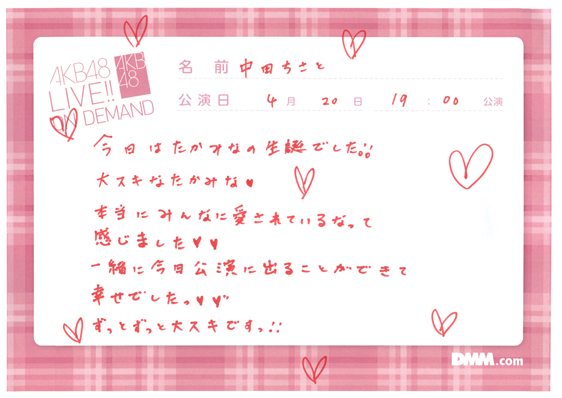 AKB48
LIVE!!
ON DEMAND
AKB
48
名 前 中田ちさと
公演日 4月 20日 19:00 公演
今日はたかみなの生誕でした!!
大スキなたかみな♥
本当にみんなに愛されているなって
感じました♥♥
一緒に今日公演に出ることができて
幸せでしたっ♥♥
ずっとずっと大スキですっ!!
DMM.com